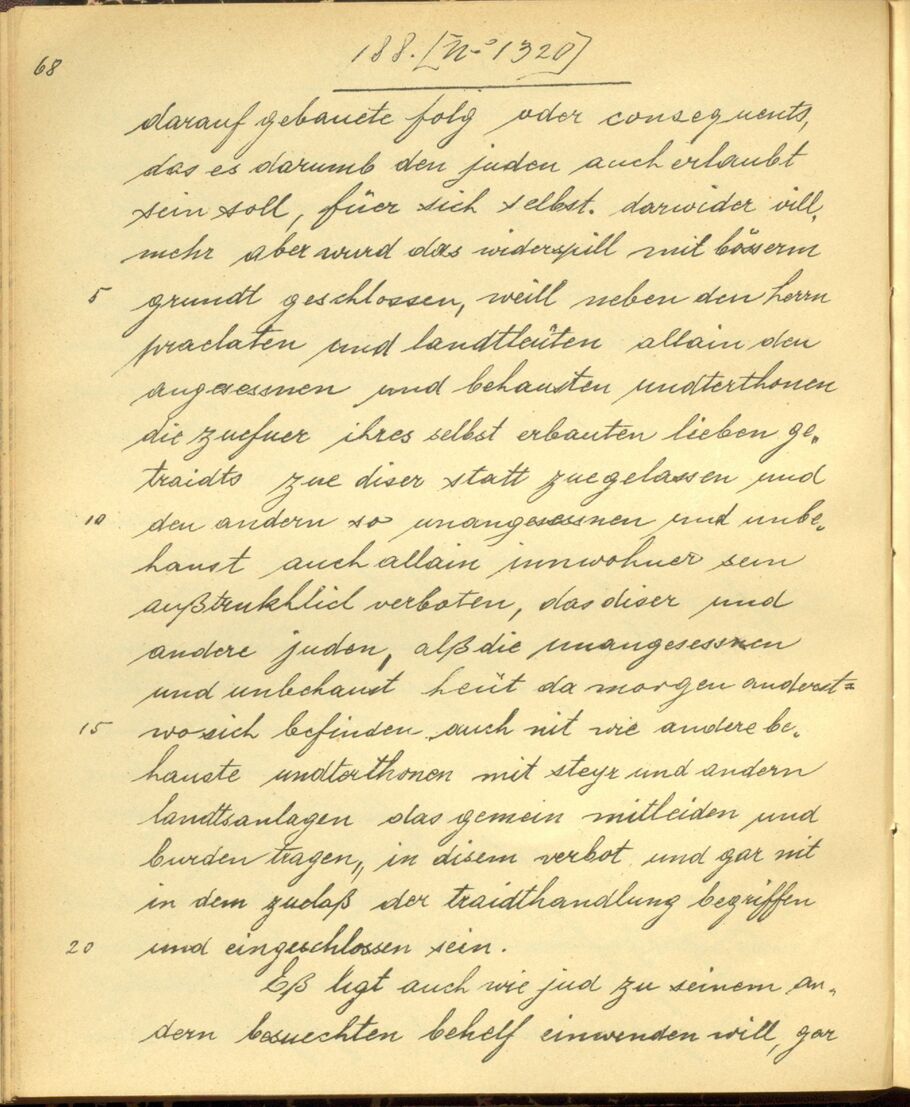 68
188. [N-o 1320]
darauf gebauete folg oder consequents,
das es darumb den juden auch erlaubt
sein soll, füer sich selbst. darwider vill„
mehr aber wurd das widerspill mit bösserm
5 grundt geschlossen, weill neben den herrn
praelaten und landtleüten allain den
angesessnen und behausten undterthonen
die zuefuer ihres selbst erbauten lieben ge„
traidts zue diser statt zuegelassen und
10 den andern so unangesessnen und unbe„
haust auch allain innwohner sein
außtrukhlich verboten, das diser und
andere juden, alß die unangesessnen
und unbehaust heüt da morgen anderst=
15 wo sich befinden auch nit wie andere be„
hauste undterthonen mit steyr und andern
landtsanlagen das gemein mitleiden und
burden tragen, in disem verbot und gar nit
in dem zuelaß der traidthandlung begriffen
20 und eingeschlossen sein.
Eß ligt auch wie jud zu seinem an„
dern besuechten behelf einwenden will, gar